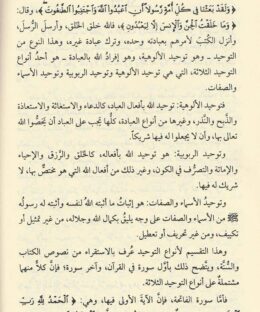 ﴿وَلَقَدْ بَعَثْنَا فِي كُلِّ أُمَّةٍ رَّسُولًا أَنِ اعْبُدُوا اللَّهَ وَاجْتَنِبُوا الطَّاغُوتَ﴾، وقال:
﴿وَمَا خَلَقْتُ الْجِنَّ وَالْإِنسَ إِلَّا لِيَعْبُدُونِ﴾، فالله خلق الخلق، وأرسل الرسل،
وأنزل الكتب لأمرهم بعبادته وحده، وترك عبادة غيره، وهذا النوع من
التوحيد هو توحيد الألوهية، وهو إفراد الله بالعبادة - هو أحد أنواع
التوحيد الثلاثة، التي هي توحيد الألوهية وتوحيد الربوبية وتوحيد الأسماء
والصفات.
فتوحيد الألوهية: هو توحيد الله بأفعال العباد، كالدعاء والاستغاثة والاستعاذة
والذبح والنذر، وغيرها من أنواع العبادة، كلها يجب على العباد أن يخصوا الله
تعالى بها، وأن لا يجعلوا له فيها شريكاً.
وتوحيد الربوبية: هو توحيد الله بأفعاله، كالخلق والرزق والإحياء
والإماتة والتصرف في الكون، وغير ذلك من أفعال الله التي هو مختص بها، لا
شريك له فيها.
وتوحيد الأسماء والصفات: هو إثبات ما أثبته الله لنفسه وأثبته له رسوله
ﷺ من الأسماء والصفات على وجه يليق بكمال الله وجلاله، من غير تمثيل أو
تكييف، ومن غير تحريف أو تعطيل.
وهذا التقسيم لأنواع التوحيد عُرف بالاستقراء من نصوص الكتاب
والسنة، ويتضح ذلك بأول سورة في القرآن، وآخر سورة؛ فإن كلاً منهما
مشتملة على أنواع التوحيد الثلاثة.
فأما سورة الفاتحة، فإن الآية الأولى فيها، وهي: ﴿الْحَمْدُ لِلَّهِ رَبِّ